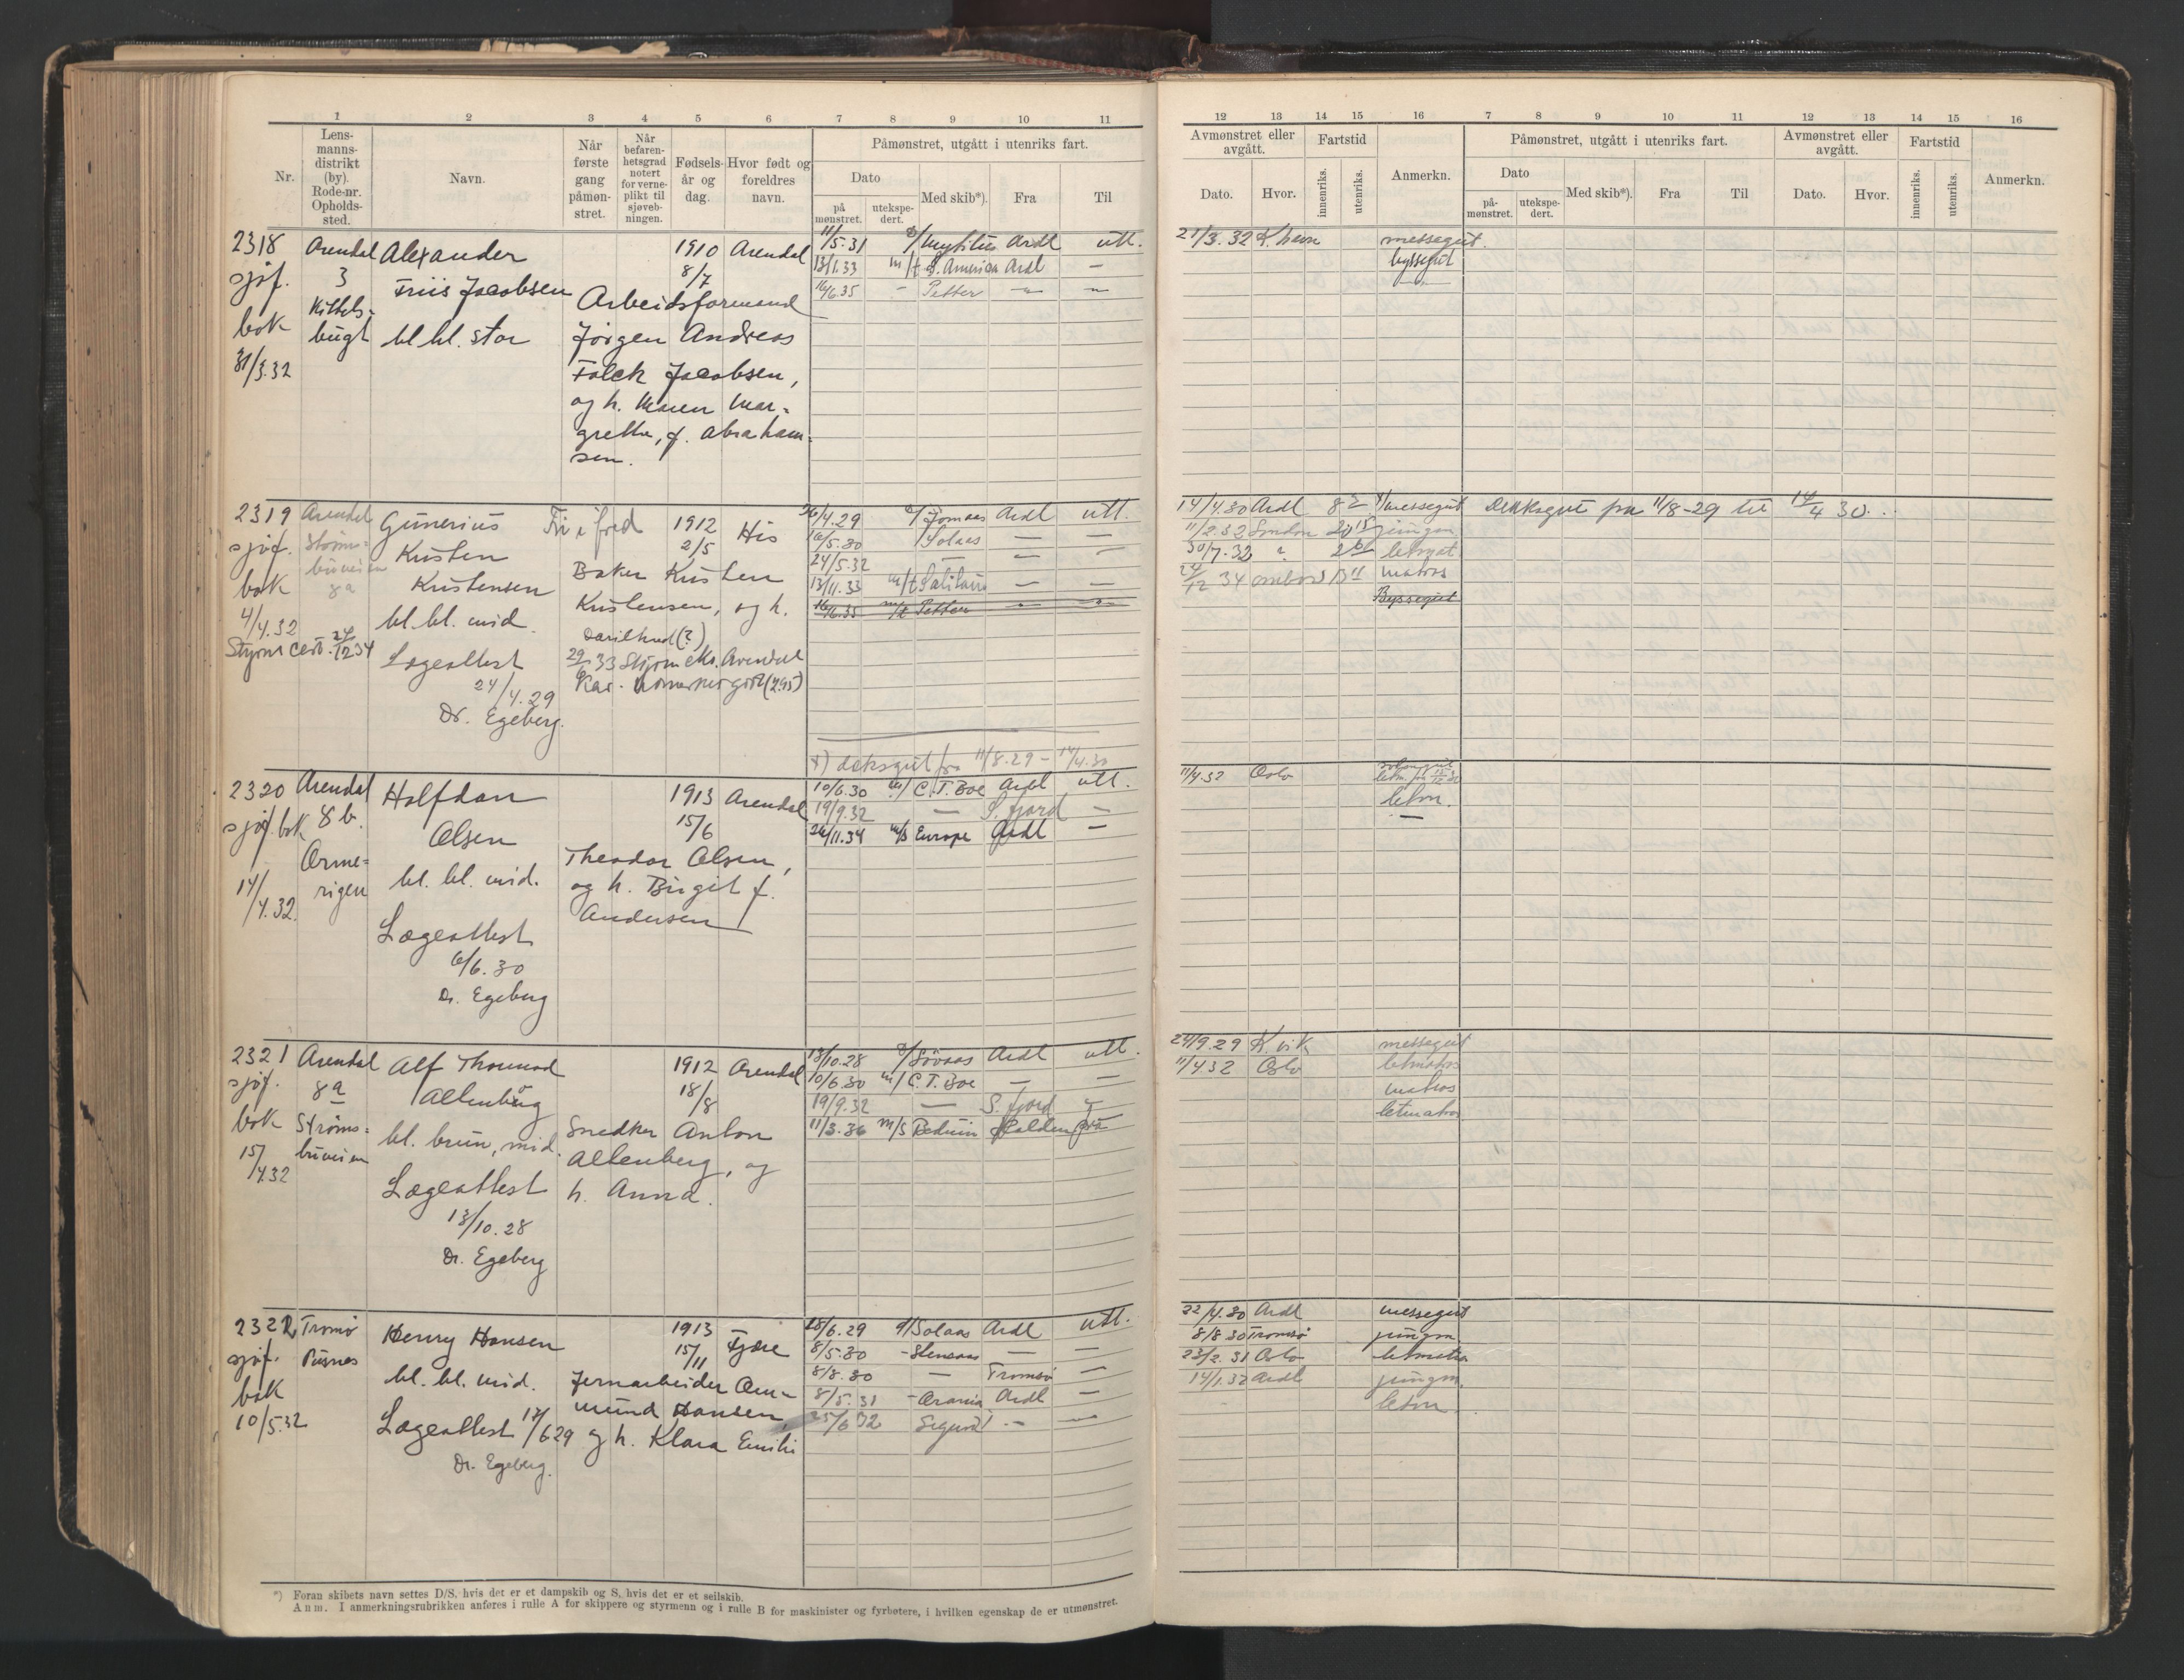 1 2 3 4 5 6 7 8 9 10 11
Nr.
Lens-
manns-
distrikt
(by).
Rode-nr.
Opholds-
sted.
Navn.
Når
første
gang
påmøn-
stret.
Når
befaren-
hetsgrad
notert
for verne-
plikt til
sjøveb-
ningen.
Fødsels-
år og
dag.
Hvor født og
foreldres
navn.
Påmønstret, utgått i utenriks fart.
Dato
på
mønstret.
utekspe-
dert.
Med skib*).
Fra
Til
12 13 14 15 16 7 8 9 10 11 12 13 14 15 16
Avmønstret eller
avgått.
Dato.
Hvor.
Fartstid
innenriks.
utenriks.
Anmerkn.
Påmønstret, utgått i utenriks fart.
Dato
på-
mønstret.
utekspe-
dert.
Med skib*).
Fra
Til
Avmønstret eller
avgått.
Dato.
Hvor.
Fartstid
innenriks.
utenriks.
Anmerkn.
2318
sjøf.
bok
31/3.32
Arendal
3
Kittels-
bugt
Alexander
Friis Jacobsen
bl. bl. stor
1910
8/7
Arendal
Arbeidsformand
Jørgen Andreas
Falck Jacobsen,
og h. Maren Mar-
grethe, f. Abraham-
sen.
11/5.31 Mytilus Ardl utl.
13/1.33 m/t S. America Ardl —
16/6.35 - Petter — —
21/3.32 K.havn messegut.
byssegut
2319
sjøf.
bok
4/4.32
Styrm cert. 24/12 34
Arendal
Strøms-
buveien
8a
Gunerius
Kristen
Kristensen
bl. bl. mid.
Lægeattest
24/4.29
Dr. Egeberg.
Fri i fred
1912
2/5
His
Baker Kristen
Kristensen, og h.
29/6 33 Styrm eks. Arendal
26/4.29 Jomaas Ardl utl.
16/5.30 Solaas — —
24/5.32 — — —
13/11.33 m/t — —
16/6.35 m/t Petter — —
*) deksgut fra 11/8.29 - 14/4.30
14/4.30 Ardl messegut Dekksgut fra 11/8-29 til 14/4 30.
11/2.32 London jungm
30/7.32 " letmat
24/12 34 ombord matros
Byssegut
2320
sjøf. bok
14/4.32
Arendal
8b.
Halfdan
Olsen
bl. bl. mid.
Lægeattest
6/6.30
Dr. Egeberg
1913
15/6
Arendal
Theodor Olsen,
og h. Birgit f.
Andersen
10/6.30 m/ C.T. Boe Ardl utl.
19/9.32 — S. fjord —
26/11.34 m/s Europe Ardl —
11/4.32 Oslo
letm.
2321
sjøf.
bok
15/4.32
Arendal
8a
Strøms-
buveien
Alf Thormod
Altenburg
bl. brun, mid.
Lægeattest
13/10.28
Dr. Egeberg
1912
18/8
Arendal
Snedker Anton
Altenberg, og
h. Anna.
13/10.28 Ardl utl.
10/6.30 m/ C.T. Boe — —
19/9.32 — S. fjord
11/3.36 m/s Beduin Halden
24/9.29 K.vik messegut
11/4 32 Oslo letmatros
matros
letmatros
2322
sjøf.
bok
10/5.32
Tromø
Pusnes
Henry Hansen
bl. bl. mid.
Lægeattest 18/6 29
Dr. Egeberg.
1913
15/11
Fjære
Jernarbeider Om-
mund Hansen,
og h. Klara Emilie
28/6.29 Solaas Ardl utl.
8/5.30 - Stensaas — —
8/8.30 — Tromsø —
8/5.31 - Arania Ardl —
25/6 32 Sigurd — —
22/4.30 Ardl messegut
8/8 30 Tromsø jungm
23/2.31 Oslo letmatr
14/1.32 Ardl jungm.
letm.
*) Foran skibets navn settes D/S, hvis det er et dampskib og S, hvis det er et seilskib.
Anm. I anmerkningsrubrikken anføres i rulle A for skippere og styrmenn og i rulle B for maskinister og fyrbøtere, i hvilken egenskap de er utmønstret.